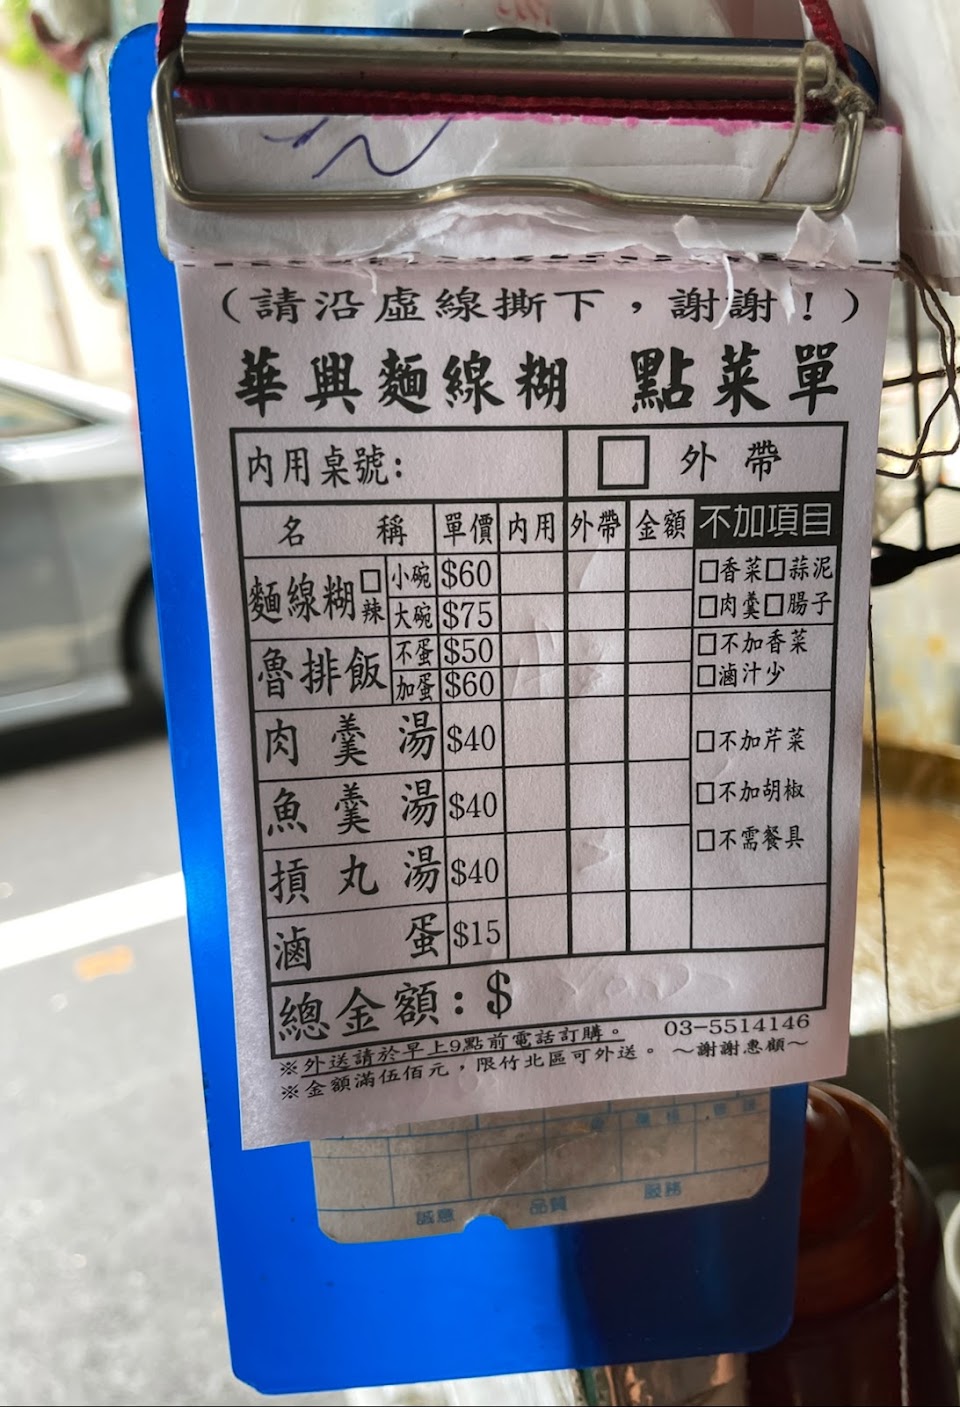 (請沿虛線撕下，謝謝!)
華興麵線糊 點菜單
內用桌號: □ 外帶
名稱 單價 內用 外帶 金額 不加項目
麵線糊 □辣 小碗 $60 □香菜□蒜泥
大碗 $75 □肉羹□腸子
魯排飯 不蛋 $50 □不加香菜
加蛋 $60 □滷汁少
肉羹湯 $40 □不加芹菜
魚羹湯 $40 □不加胡椒
摃丸湯 $40 □不需餐具
滷蛋 $15
總金額: $
※外送請於早上9點前電話訂購。 03-5514146
※金額滿伍佰元，限竹北區可外送。 ~謝謝惠顧~
誠意 品質 服務